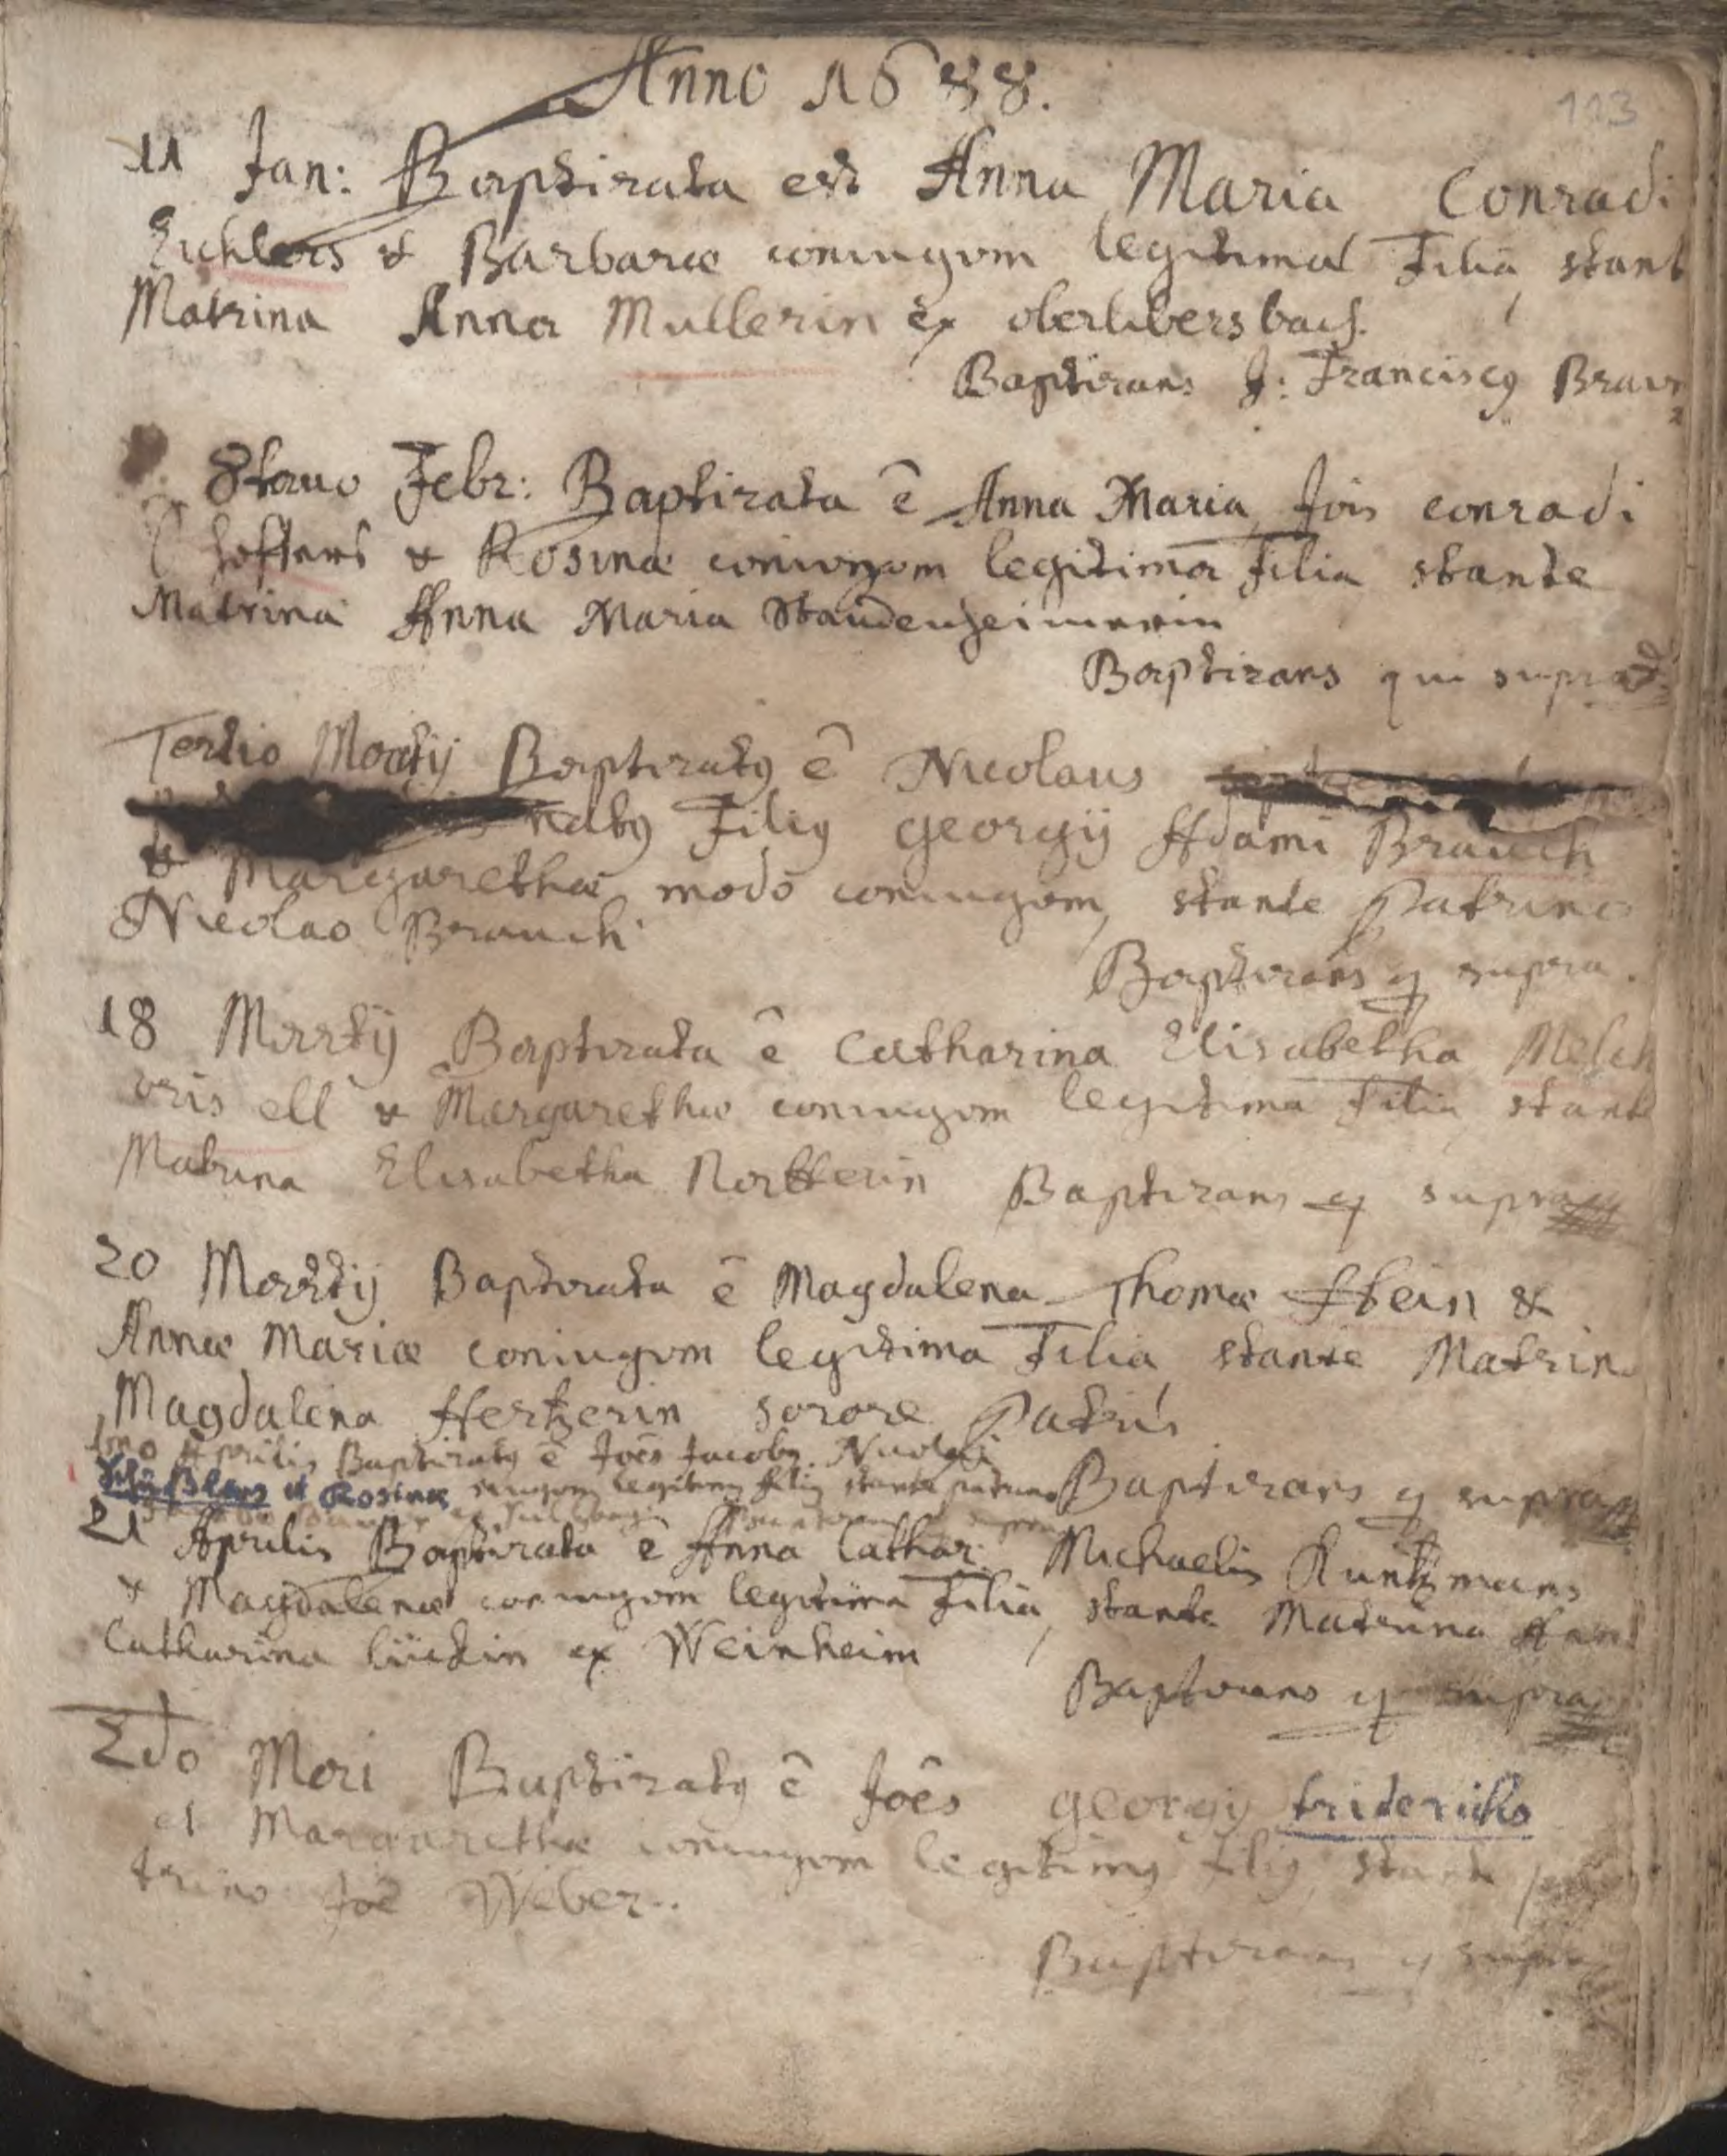 Anno 1688.
113
11 Jan: Baptizata est Anna Maria Conradi
Eichlers & Barbaræ coniugvm legitima Filia, stant
Matrina Anna Mullerin ex oberlibersbach.
Baptizans J: Franciscq Braun
8tauo Febr: Baptizata ē Anna Maria, Jois conradi
& Rosinæ coniugvm legitima Filia stante
Matrina Anna Maria Staudenheimerin
Baptizans qui supra
Tertio Martij Baptizatq ē Nicolaus
natq Filiq georgij Adami Brauch
& Margarethæ modo coniugvm, stante Patrino
Nicolao Brauch
Baptizans q supra.
18 Martij Baptizata ē Catharina Elisabetha Melch
oris ell & Margarethæ coniugvm legitima Filia, stante
Matrina Elisabetha Baptizans q supra
20 Martij Baptizata ē Magdalena Thomæ &
Annæ Mariæ coniugvm legitima Filia, stante Matrin
Magdalena Hertzerin sorore Patris
1mo Aprilis Baptizatq ē Joēs Jacobq Nicolai
et Rosinæ legitimq filiq stante patrino
Baptizans q supra
21 Aprilis Baptizata ē Anna Cathar: Michaelis Kuntzmans
& Magdalenæ coniugvm legitima Filia, stante Matrina Anna
Catharina ex Weinheim
Baptizans q supra
2do Mai Baptizatq ē Joēs georgij friderichs
et Margarethæ coniugvm legitimq filiq, stante pa
trino Joē Weber..
Baptizans q supra